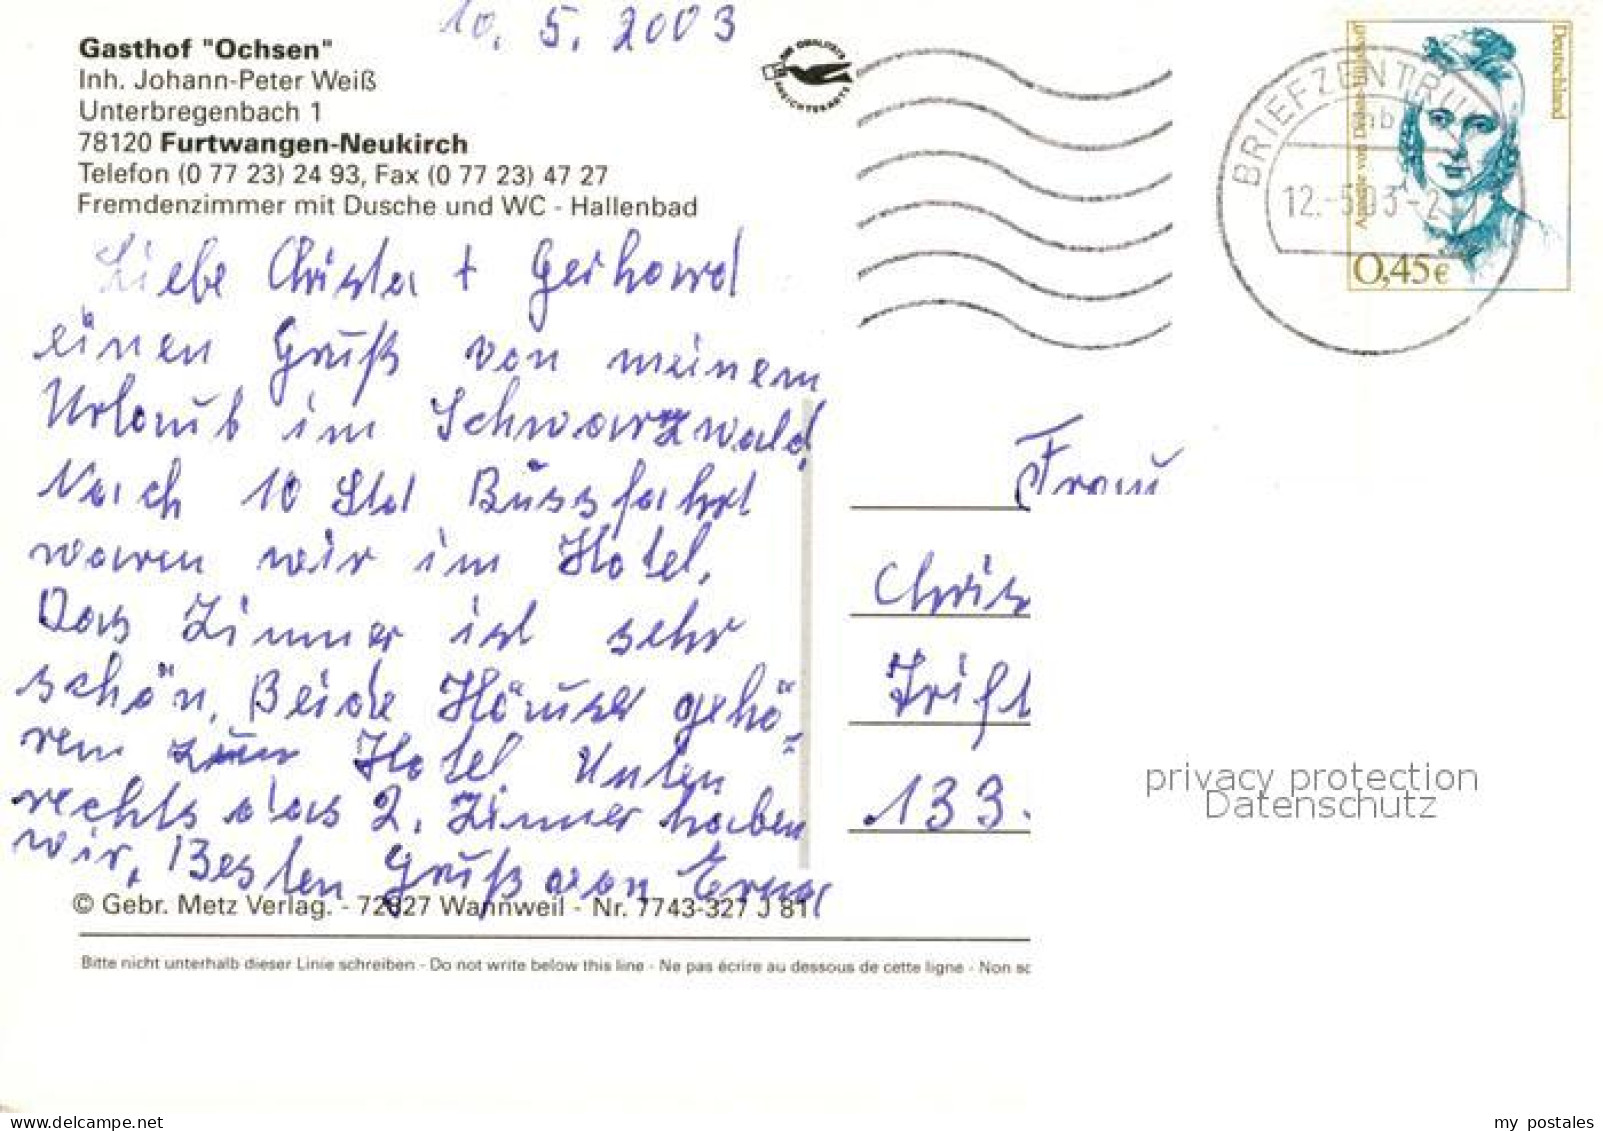 10. 5. 2003
Gasthof "Ochsen"
Inh. Johann-Peter Weiß
Unterbregenbach 1
78120 Furtwangen-Neukirch
Telefon (0 77 23) 24 93, Fax (0 77 23) 47 27
Fremdenzimmer mit Dusche und WC - Hallenbad
Liebe Christa + Gerhard
einen Gruß von meinem
Urlaub im Schwarzwald,
Nach 10 Std Bussfahrt
waren wir im Hotel.
Das Zimmer ist sehr
schön. Beide Häuser gehö-
ren zum Hotel. Unten
rechts das 2. Zimmer haben
wir. Besten Gruß von Erna
© Gebr. Metz Verlag. - 72827 Wannweil - Nr. 7743-327 J 81
Bitte nicht unterhalb dieser Linie schreiben - Do not write below this line - Ne pas écrire au dessous de cette ligne - Non sc
BRIEFZENTRUM
12.-5.03-2
Deutschland
0,45€
Frau
Chris
Trift
133.
privacy protection
Datenschutz
my postales